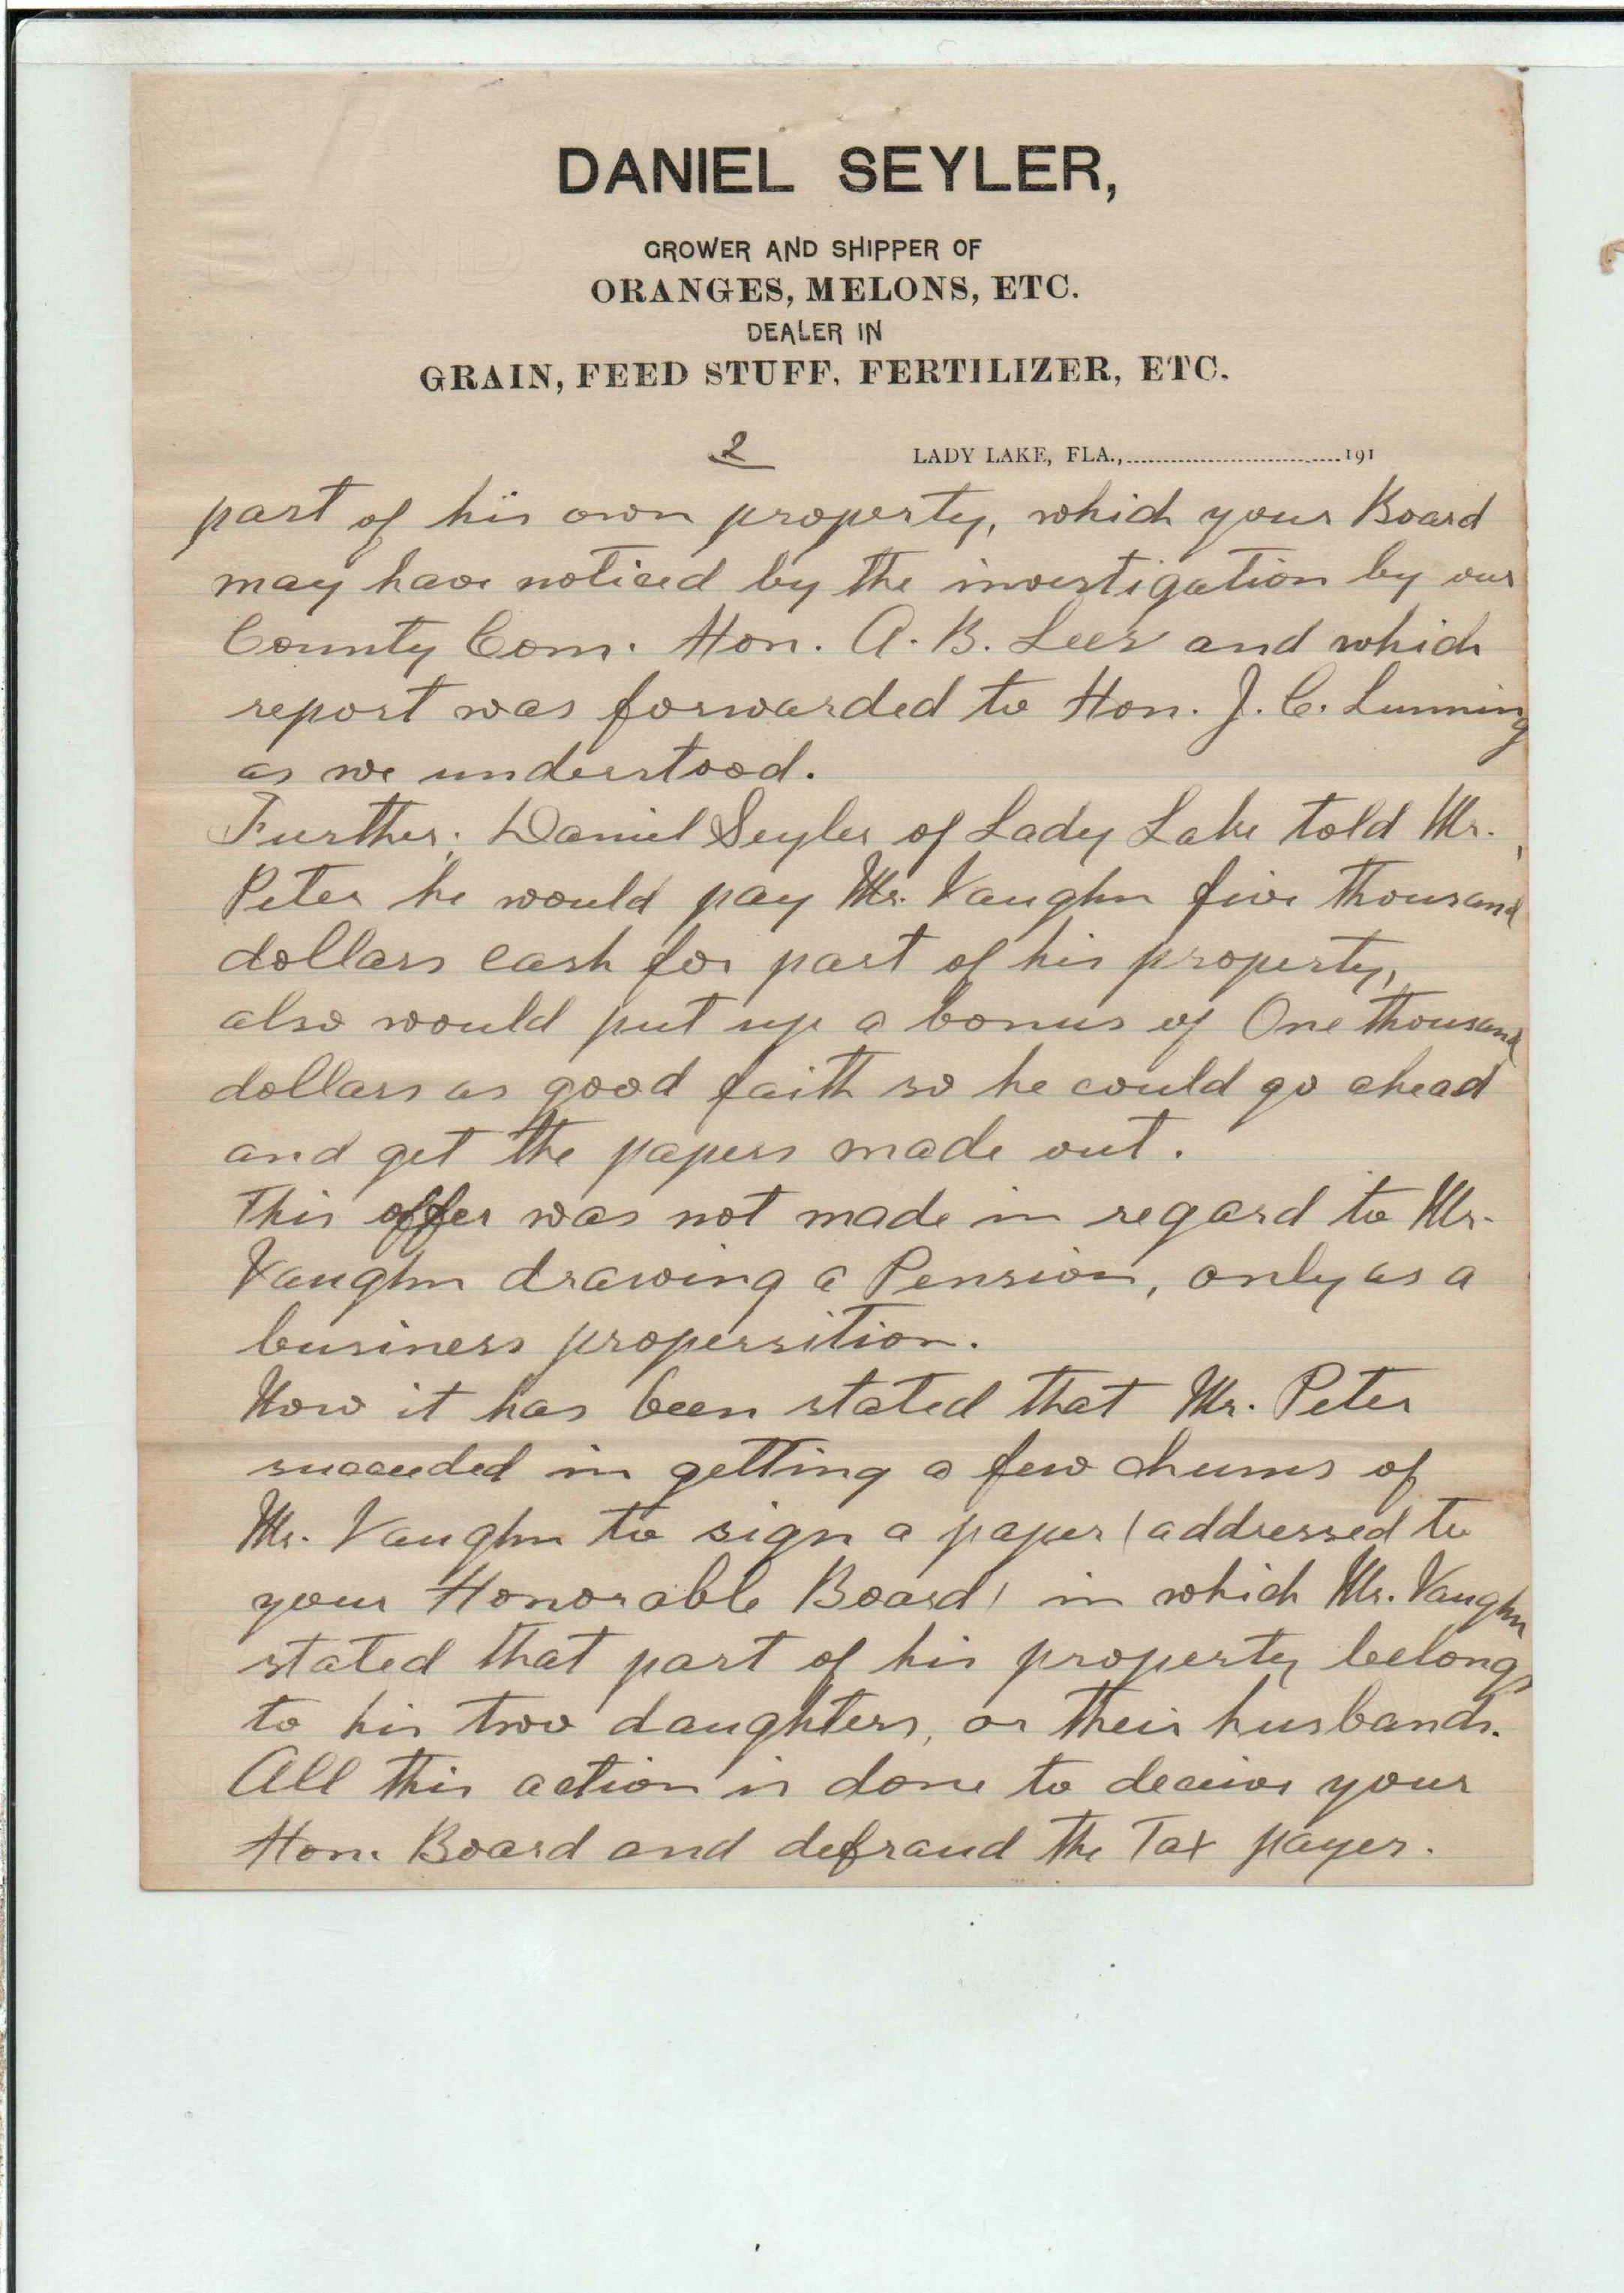 DANIEL SEYLER,
GROWER AND SHIPPER OF
ORANGES, MELONS, ETC.
DEALER IN
GRAIN, FEED STUFF, FERTILIZER, ETC.
2 LADY LAKE, FLA., 191
part of his own property, which your Board
may have noticed by the investigation by our
County Com. Hon. A. B. Lees and which
report was forwarded to Hon. J. C. Lunning
as we understood.
Further, Daniel Seyler of Lady Lake told Mr.
Peter he would pay Mr. Vaughn five thousand
dollars cash for part of his property,
also would put up a bonus of One thousand
dollars as good faith so he could go ahead
and get the papers made out.
This offer was not made in regard to Mr.
Vaughn drawing a Pension, only as a
business properssition.
Now it has been stated that Mr. Peter
succeeded in getting a few chums of
Mr. Vaughn to sign a paper (addressed to
your Honorable Board) in which Mr. Vaughn
stated that part of his property belongs
to his two daughters, or their husbands.
All this action is done to deceive your
Hon. Board and defraud the Tax payer.